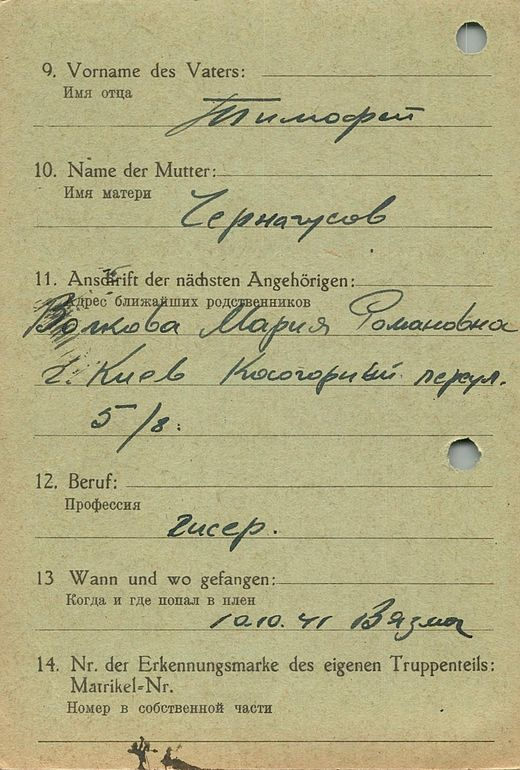 9. Vorname des Vaters:
Имя отца
Тимофей
10. Name der Mutter:
Имя матери
Чернагусов
11. Anschrift der nächsten Angehörigen:
Адрес ближайших родственников
Волкова Мария Романовна
г. Киев Косогорный переул.
5/8.
12. Beruf:
Профессия
гисер.
13 Wann und wo gefangen:
Когда и где попал в плен
10.10.41 Вязма
14. Nr. der Erkennungsmarke des eigenen Truppenteils:
Matrikel-Nr.
Номер в собственной части